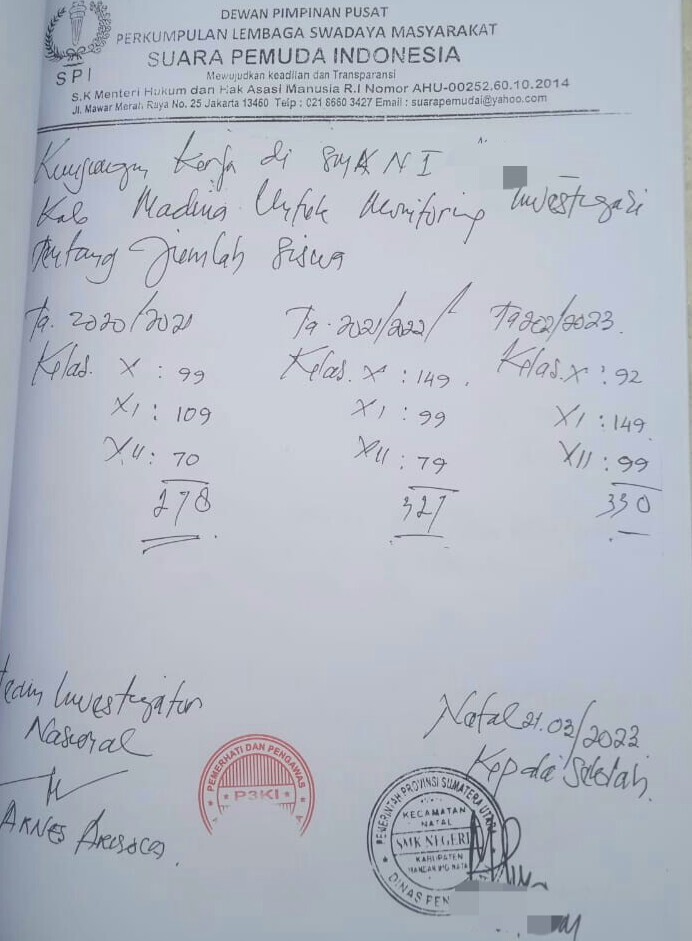 DEWAN PIMPINAN PUSAT
PERKUMPULAN LEMBAGA SWADAYA MASYARAKAT
SUARA PEMUDA INDONESIA
Mewujudkan keadilan dan Transparansi
SPI
S.K Menteri Hukum dan Hak Asasi Manusia R.I Nomor AHU-00252.60.10.2014
Jl. Mawar Merah Raya No. 25 Jakarta 13460 Telp : 021 8660 3427 Email : suarapemudai@yahoo.com
Kunjungan kerja di SMK N I
Kab Madina Untuk Monitoring Investigasi
tentang Jumlah Siswa
Ta. 2020/2021 Ta. 2021/2022 Ta 2022/2023.
Kelas. X : 99 Kelas. X : 149. Kelas. X : 92
XI : 109 XI : 99 XI : 149
XII : 70 XII : 79 XII : 99
278 327 330
Team Investigator
Nasional
Natal 21.03/2023
Kepala Sekolah
PEMERHATI DAN PENGAWAS
P3KI
PEMERINTAH PROVINSI SUMATERA UTARA
KECAMATAN
NATAL
SMK NEGERI
KABUPATEN
MANDAILING NATAL
DINAS PEN